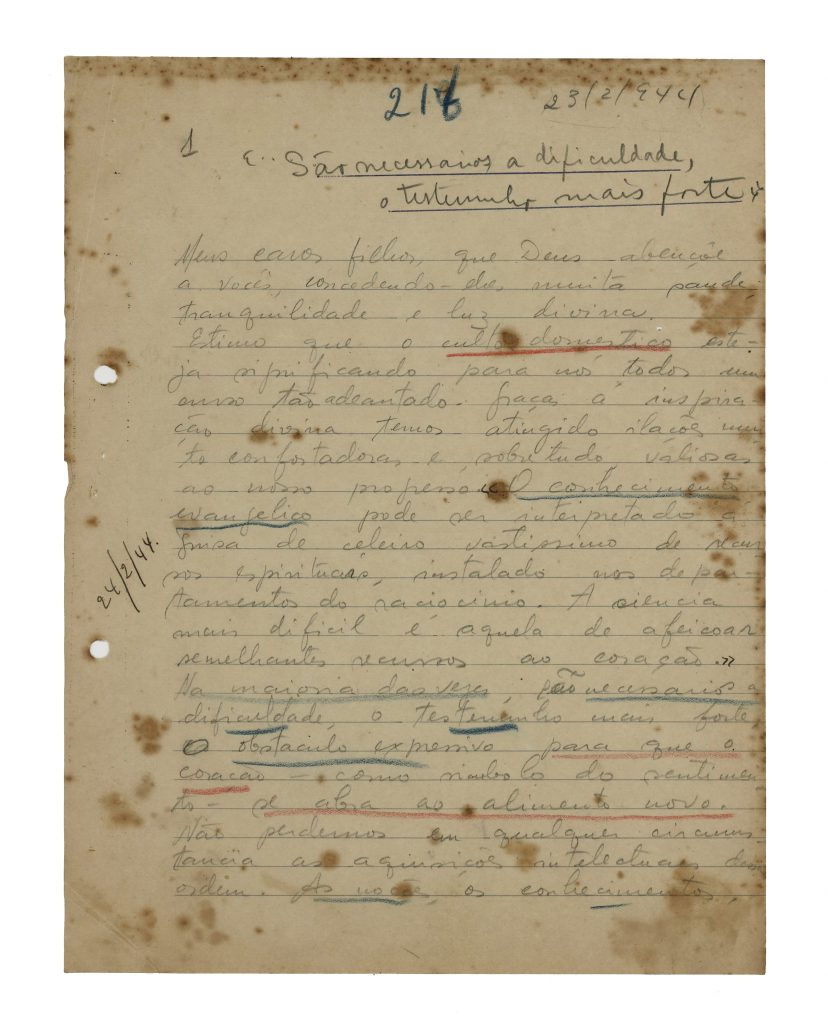 217
23/2/944
1 E.. São necessarios a dificuldade,
o testemunho mais forte
Meus caros filhos, que Deus abençõe
a vocês, concedendo-lhes muita saúde,
tranquilidade e luz divina.
Estimo que o culto domestico este-
ja significando para nós todos um
curso tão adeantado. Graças á inspira-
ção divina temos atingido ilações mui-
to confortadoras e, sobretudo, valiosas
ao nosso progresso. "O conhecimento
evangelico pode ser interpretado á
guisa de celeiro vastissimo de recur
sos espirituais, instalado nos depar-
tamentos do raciocinio. A ciencia
mais dificil é aquela de afeiçoar
semelhantes recursos ao coração."
Na maioria das vezes, são necessarios a
dificuldade, o testemunho mais forte,
o obstaculo expressivo para que o
coração - como simbolo do sentimen
to - se abra ao alimento novo.
Não perdemos em qualquer circuns-
tancia as aquisições intelectuaes dessa
ordem. As noções, os conhecimentos,
24/2/44.